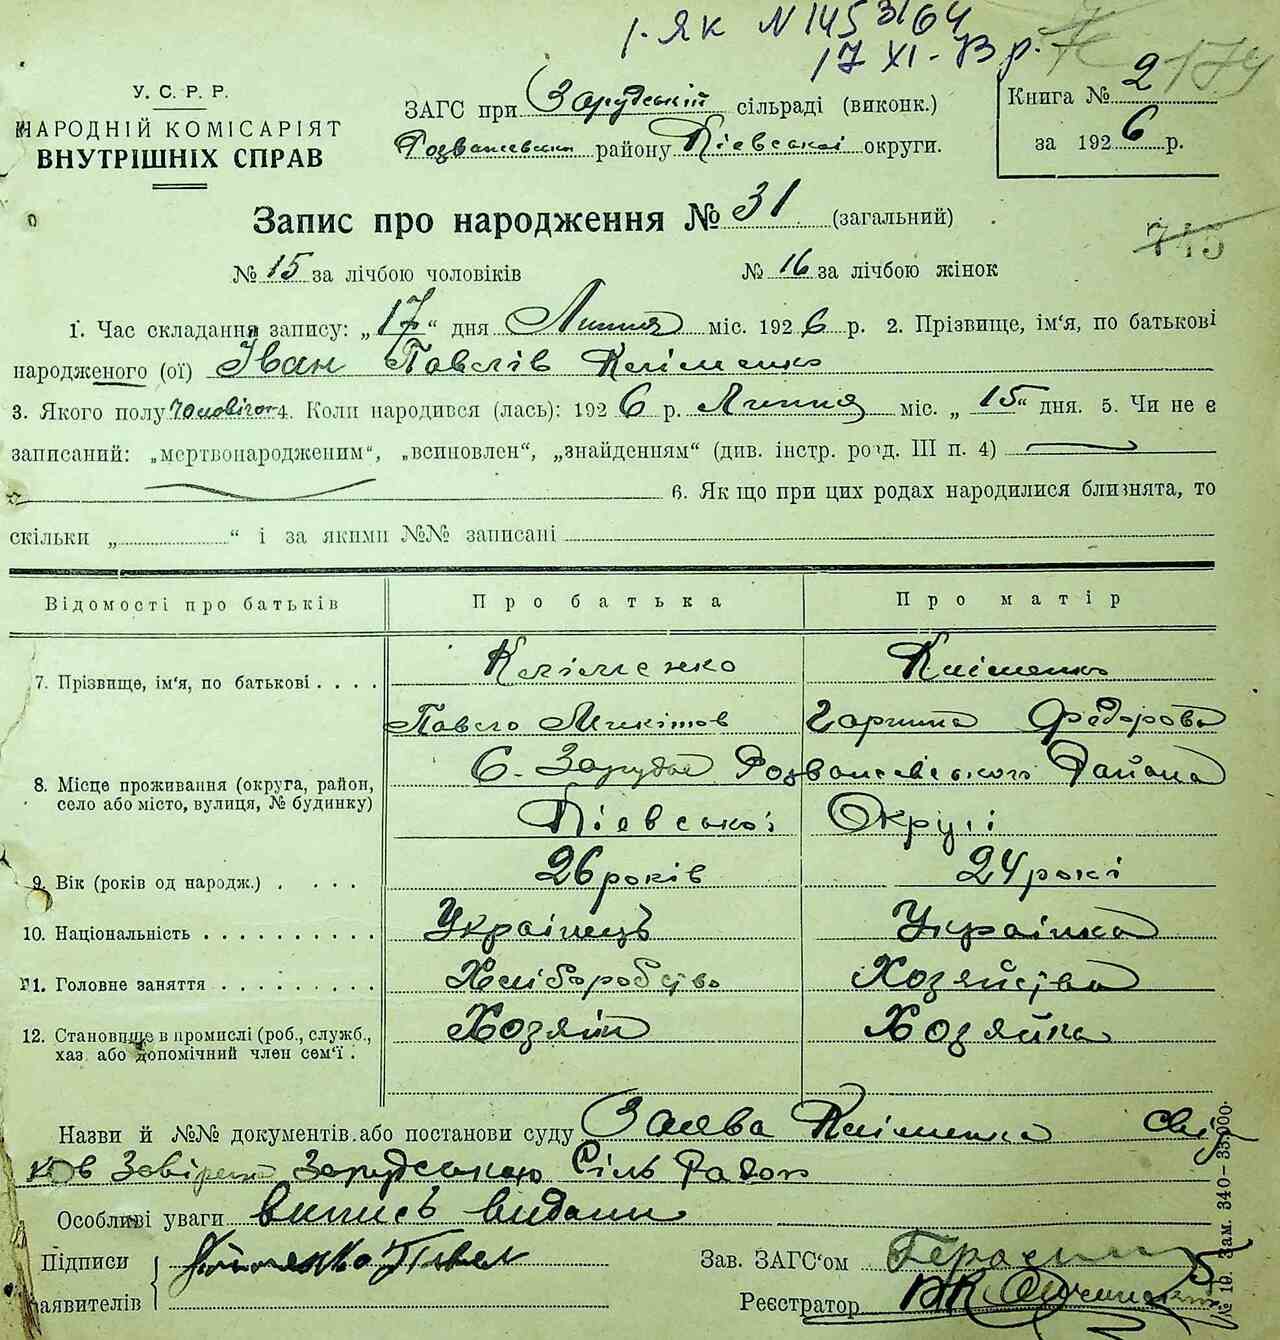 І-ЯК N 1453164
17 XI-73 р.
179
У. С. Р. Р.
НАРОДНІЙ КОМІСАРІЯТ
ВНУТРІШНІХ СПРАВ
ЗАГС при Зарудській сільраді (виконк.)
Розважевськ району Київської округи.
Книга № 2
за 1926 р.
Запис про народження № 31 (загальний)
745
№ 15 за лічбою чоловіків № 16 за лічбою жінок
1. Час складання запису: „17“ дня Липня міс. 1926 р. 2. Прізвище, ім'я, по батькові
народженого (ої) Іван Павлів Кліменко
3. Якого полу чоловічого 4. Коли народився (лась): 1926 р. Липня міс. „15“ дня. 5. Чи не є
записаний: „мертвонародженим“, „всиновлен“, „знайденням“ (див. інстр. розд. III п. 4)
6. Як що при цих родах народилися близнята, то
скільки „ “ і за якими №№ записані
Відомості про батьків Про батька Про матір
7. Прізвище, ім'я, по батькові . . . . Кліменко Кліменко
Павло Микітов Гарпина Федорова
8. Місце проживання (округа, район, село або місто, вулиця, № будинку) С. Зарудье Розважевського Района
Кіевської Округі
9. Вік (років од народж.) . . . . 26 років 24 рокі
10. Національність . . . . . . . . . . Українець Українка
11. Головне заняття . . . . . . . . . Хліборобство Хозяйства
12. Становище в промислі (роб., служб., Хозяїн Хозяйка
хаз. або допомічний член сем'ї .
Назви й №№ документів або постанови суду Заява Кліменка свід
ков Завірен Зарудською Сіль Радою
Особливі уваги випись видана
Підписи Кліменко Павел Зав. ЗАГС'ом
заявителів Реєстратор
№ 19. Зам. 340—35.000.